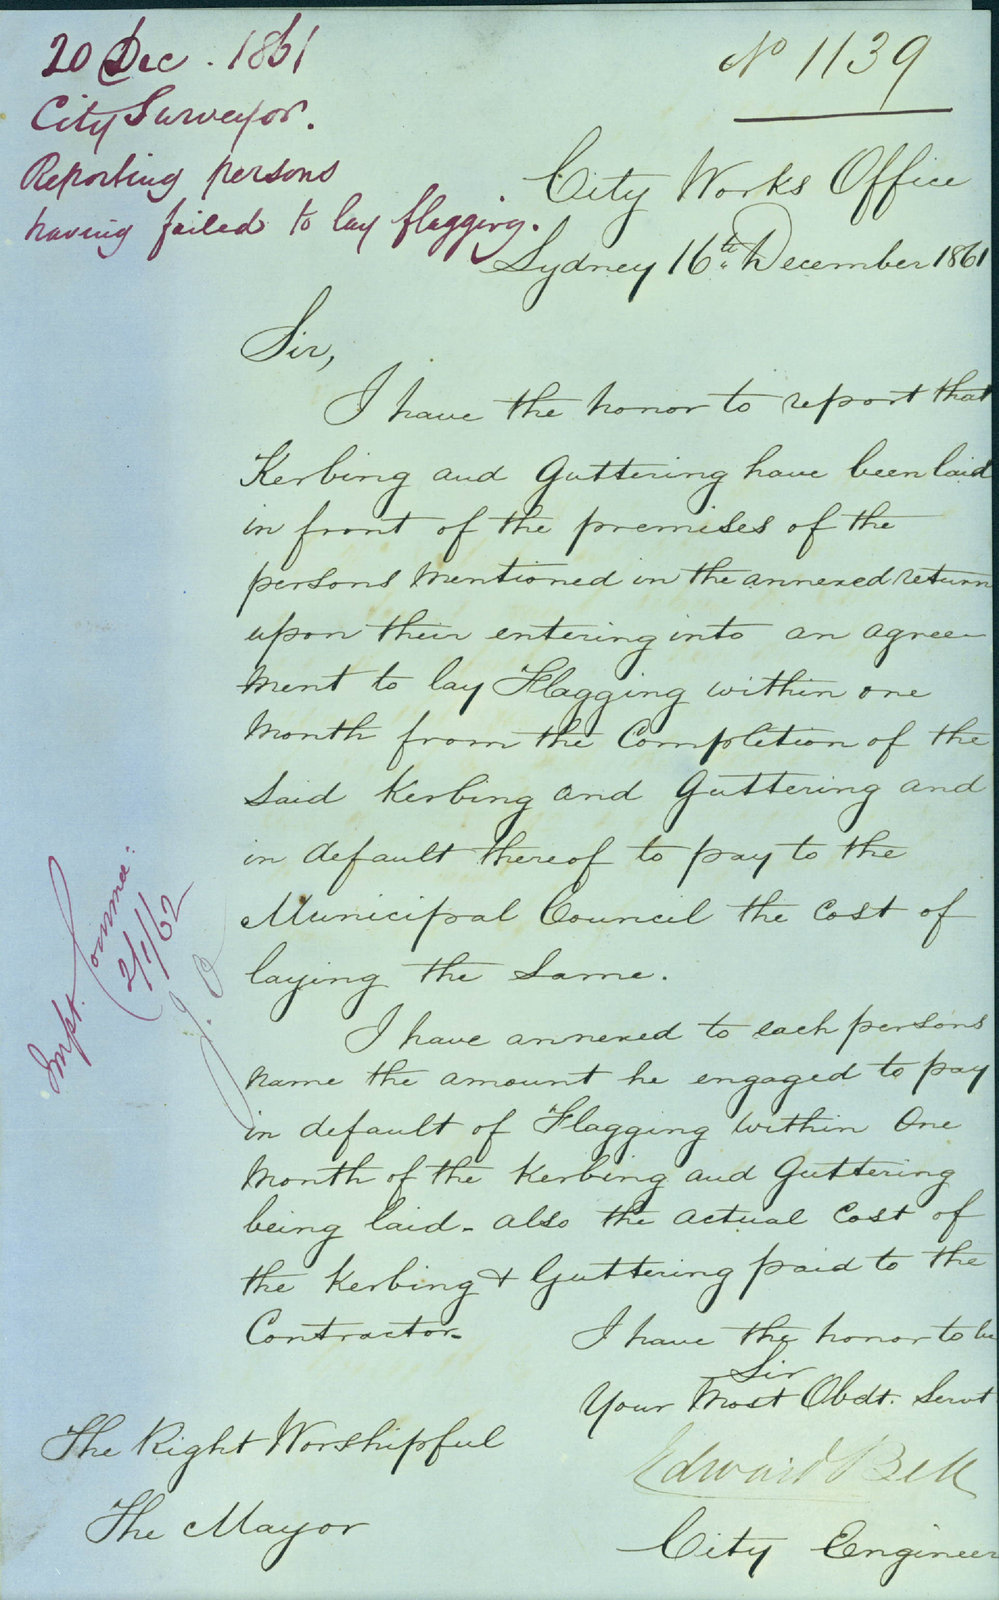 20 Dec. 1861
City Surveyor.
Reporting persons
having failed to lay flagging.
No 1139
City Works Office
Sydney 16th December 1861
Sir,
I have the honor to report that
Kerbing and Guttering have been laid
in front of the premises of the
persons mentioned in the annexed return
upon their entering into an agree
ment to lay Flagging within one
Month from the Completion of the
said Kerbing and Guttering and
in default thereof to pay to the
Municipal Council the cost of
laying the same.
I have annexed to each persons
name the amount he engaged to pay
in default of Flagging within One
Month of the Kerbing and Guttering
being laid - also the actual Cost of
the Kerbing & Guttering paid to the
Contractor -
I have the honor to be
Sir
Your Most Obdt. Servt
Edward Bell
City Engineer
The Right Worshipful
The Mayor
Impt. Committee
2/1/62
J. O